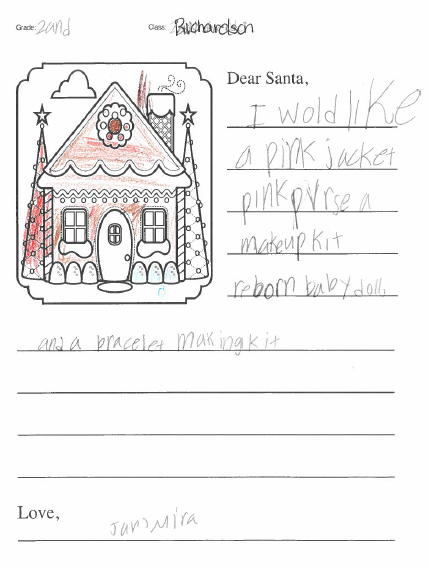 Grade: 2and Class: Richardson
Dear Santa,
I wold like
a pink jacket
pink pvrse a
makeup kit
reborn baby doll
and a bracelet making kit
Love,